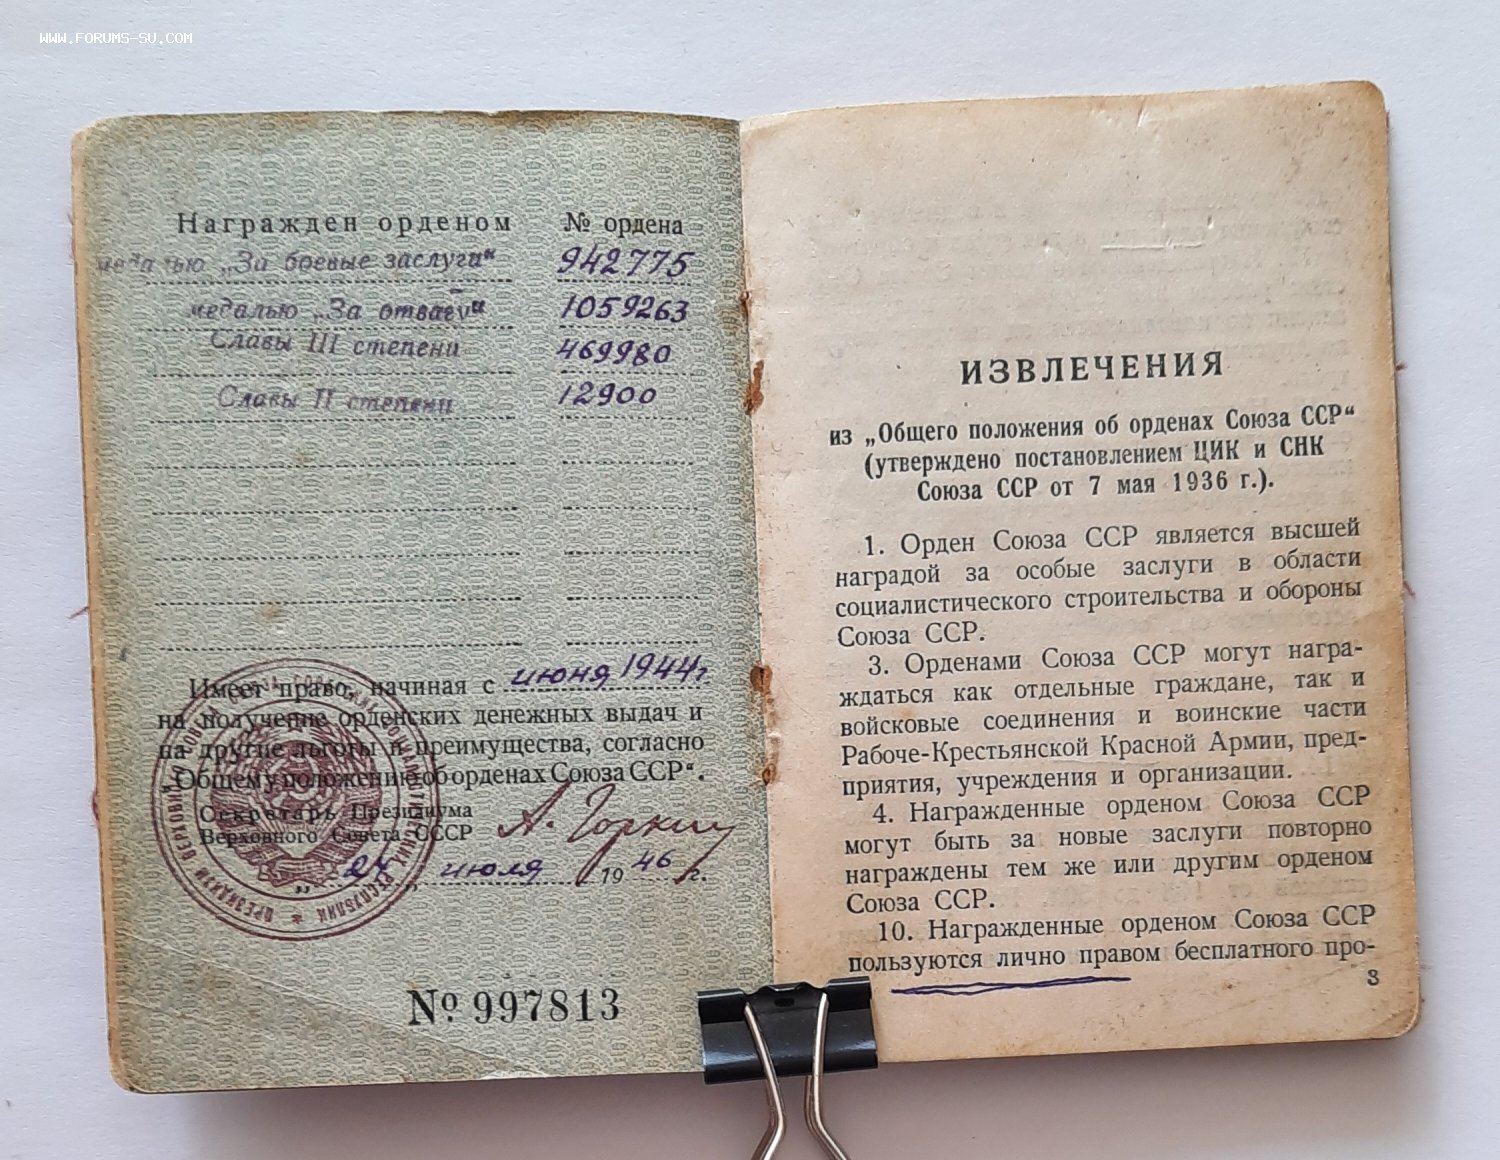 WWW.FORUMS-SU.COM
Награжден орденом № ордена
медалью „За боевые заслуги“ 942775
медалью „За отвагу“ 1059263
Славы III степени 469980
Славы II степени 12900
Имеет право, начиная с июня 1944 г
на получение орденских денежных выдач и
на другие льготы и преимущества, согласно
Общему положению об орденах Союза ССР“.
Секретарь Президиума
Верховного Совета СССР А. Горкин
июля 1946 г.
№ 997813
ИЗВЛЕЧЕНИЯ
из „Общего положения об орденах Союза ССР“
(утверждено постановлением ЦИК и СНК
Союза ССР от 7 мая 1936 г.).
1. Орден Союза ССР является высшей
наградой за особые заслуги в области
социалистического строительства и обороны
Союза ССР.
3. Орденами Союза ССР могут награ-
ждаться как отдельные граждане, так и
войсковые соединения и воинские части
Рабоче-Крестьянской Красной Армии, пред-
приятия, учреждения и организации.
4. Награжденные орденом Союза ССР
могут быть за новые заслуги повторно
награждены тем же или другим орденом
Союза ССР.
10. Награжденные орденом Союза ССР
пользуются лично правом бесплатного про-
3